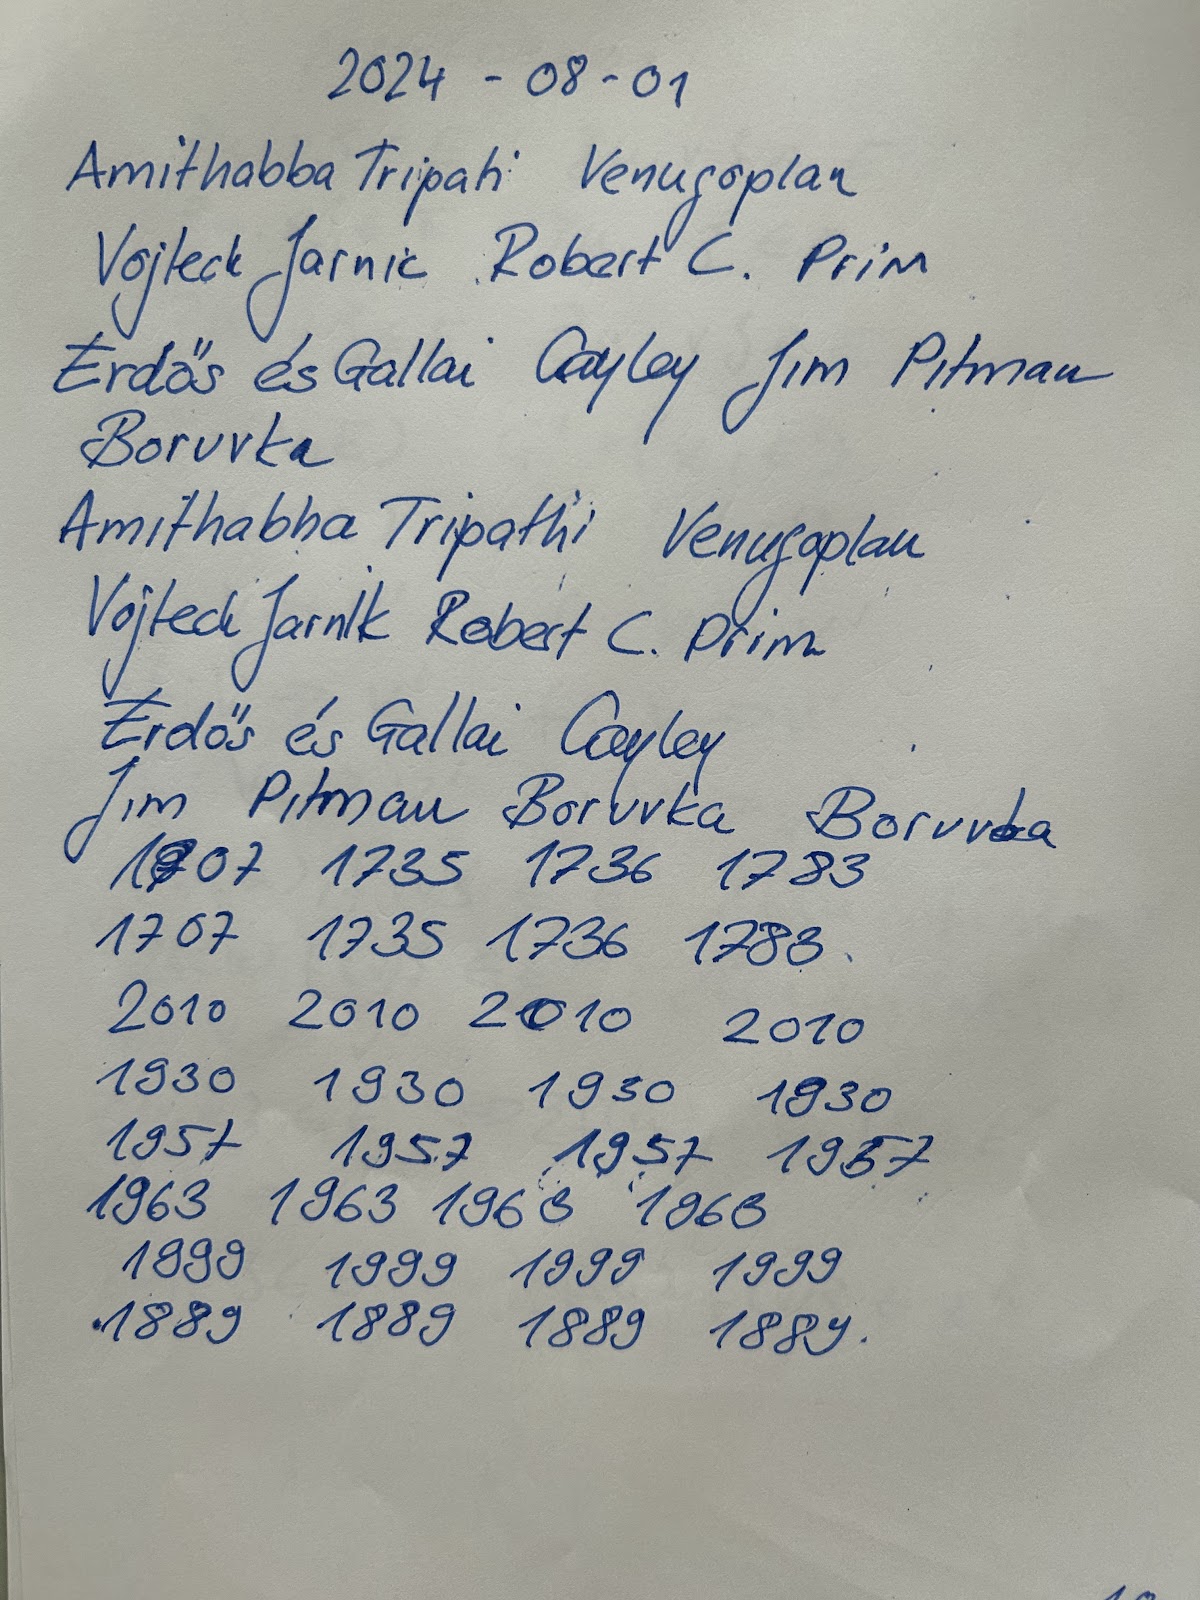 2024 - 08 - 01
Amithabba Tripati Venugoplan
Vojteck Jarnic Robert C. Prim
Erdős és Gallai Cayley Jim Pitman
Boruvka
Amithabba Tripathi Venugoplan
Vojteck Jarnik Robert C. Prim
Erdős és Gallai Cayley
Jim Pitman Boruvka Boruvka
1707 1735 1736 1783
1707 1735 1736 1783.
2010 2010 2010 2010
1930 1930 1930 1930
1957 1957 1957 1957
1963 1963 1963 1963
1999 1999 1999 1999
1889 1889 1889 1889.